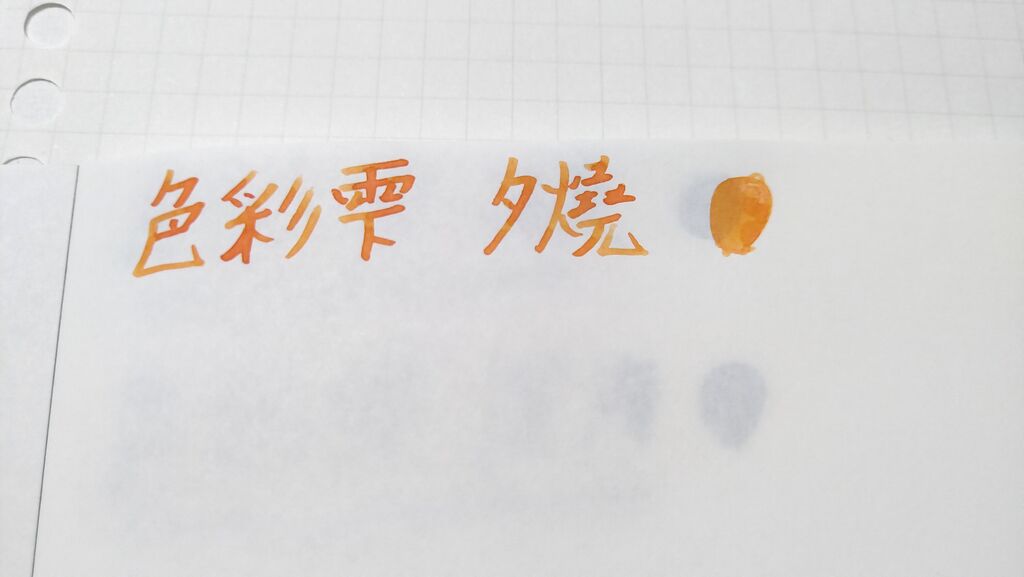 色彩雫 夕燒